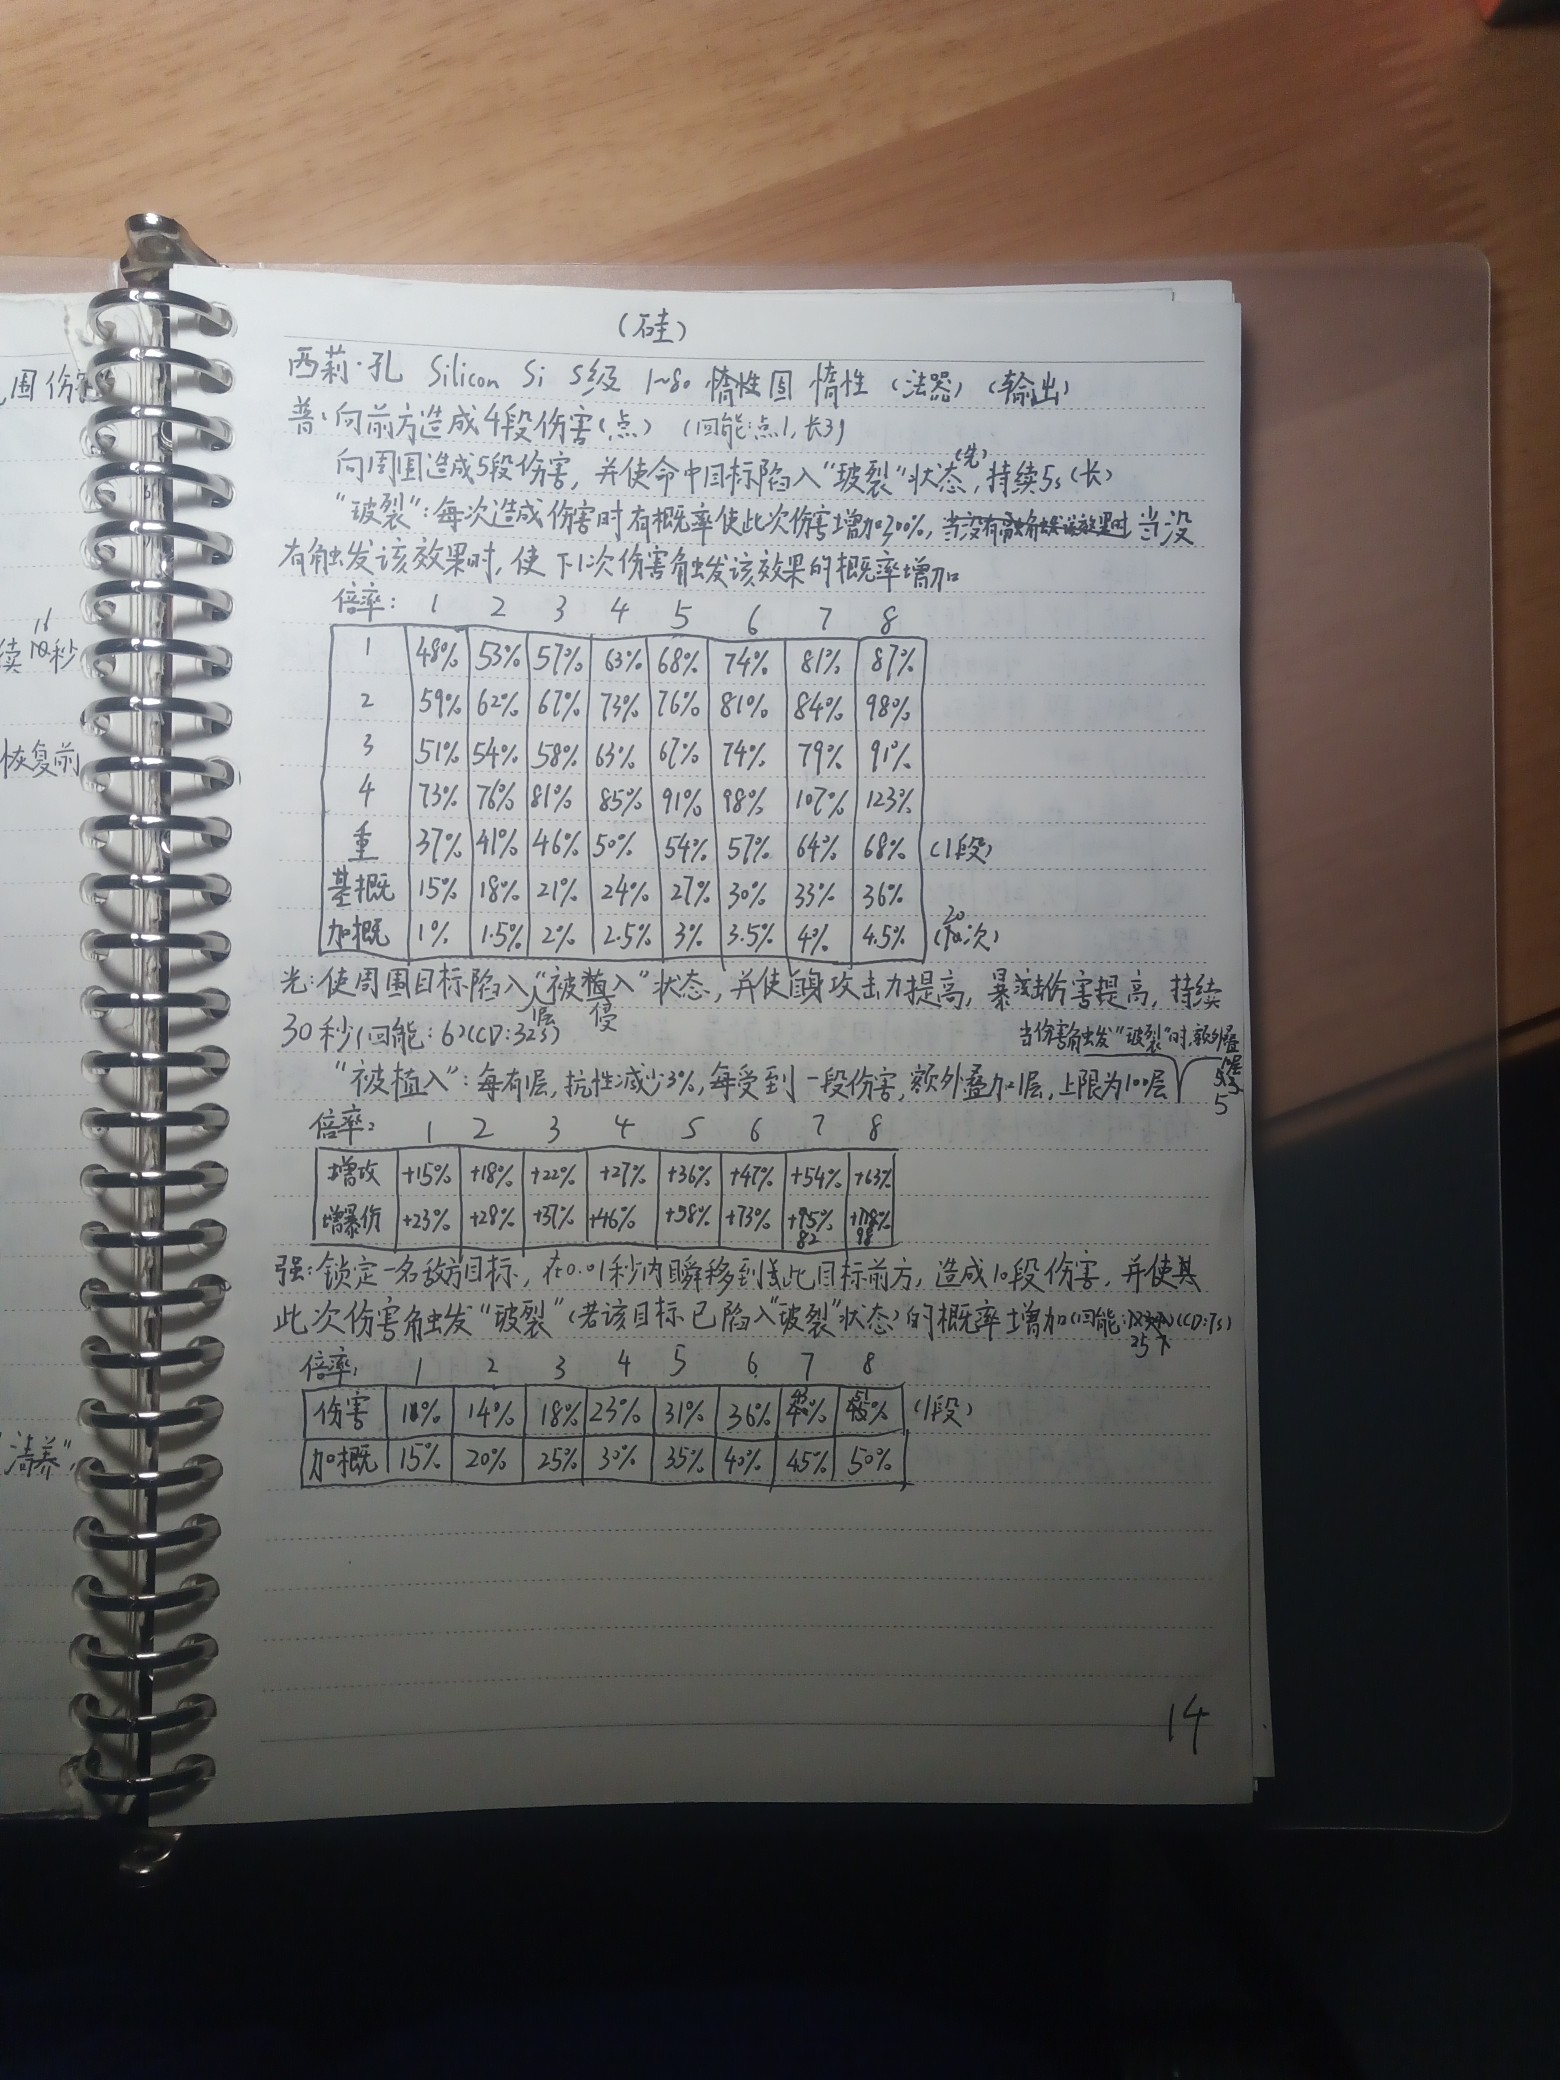 围伤害
16
续 秒
恢复前
(硅)
西莉·孔 Silicon Si S级 1~80 惰性固 惰性 (法器) (输出)
普:向前方造成4段伤害(点) (回能:点1,长3)
向周围造成5段伤害,并使命中目标陷入“玻裂”状态(先),持续5s(长)
“玻裂”:每次造成伤害时有概率使此次伤害增加300%,当没有触发该效果时,当没
有触发该效果时,使下1次伤害触发该效果的概率增加
倍率: 1 2 3 4 5 6 7 8
1 48% 53% 57% 63% 68% 74% 81% 87%
2 59% 62% 67% 73% 76% 81% 84% 98%
3 51% 54% 58% 63% 67% 74% 79% 91%
4 73% 76% 81% 85% 91% 98% 107% 123%
重 37% 41% 46% 50% 54% 57% 64% 68% (1段)
基概 15% 18% 21% 24% 27% 30% 33% 36%
加概 1% 1.5% 2% 2.5% 3% 3.5% 4% 4.5% (20次)
光:使周围目标陷入1层“被植入”状态,并使自身攻击力提高,暴击伤害提高,持续
侵
30秒(回能:6)(CD:32s)
当伤害触发“玻裂”时,额外叠
层
5
“被植入”:每有1层,抗性减少3%,每受到一段伤害,额外叠加1层,上限为100层
倍率: 1 2 3 4 5 6 7 8
增攻 +15% +18% +22% +27% +36% +47% +54% +63%
增暴伤 +23% +28% +37% +46% +58% +73% +82% +98%
强:锁定一名敌方目标,在0.01秒内瞬移到此目标前方,造成10段伤害,并使其
此次伤害触发“玻裂”(若该目标已陷入“玻裂”状态)的概率增加(回能:25)(CD:7s)
倍率: 1 2 3 4 5 6 7 8
伤害 11% 14% 18% 23% 31% 36% 43% 51% (1段)
加概 15% 20% 25% 30% 35% 40% 45% 50%
14